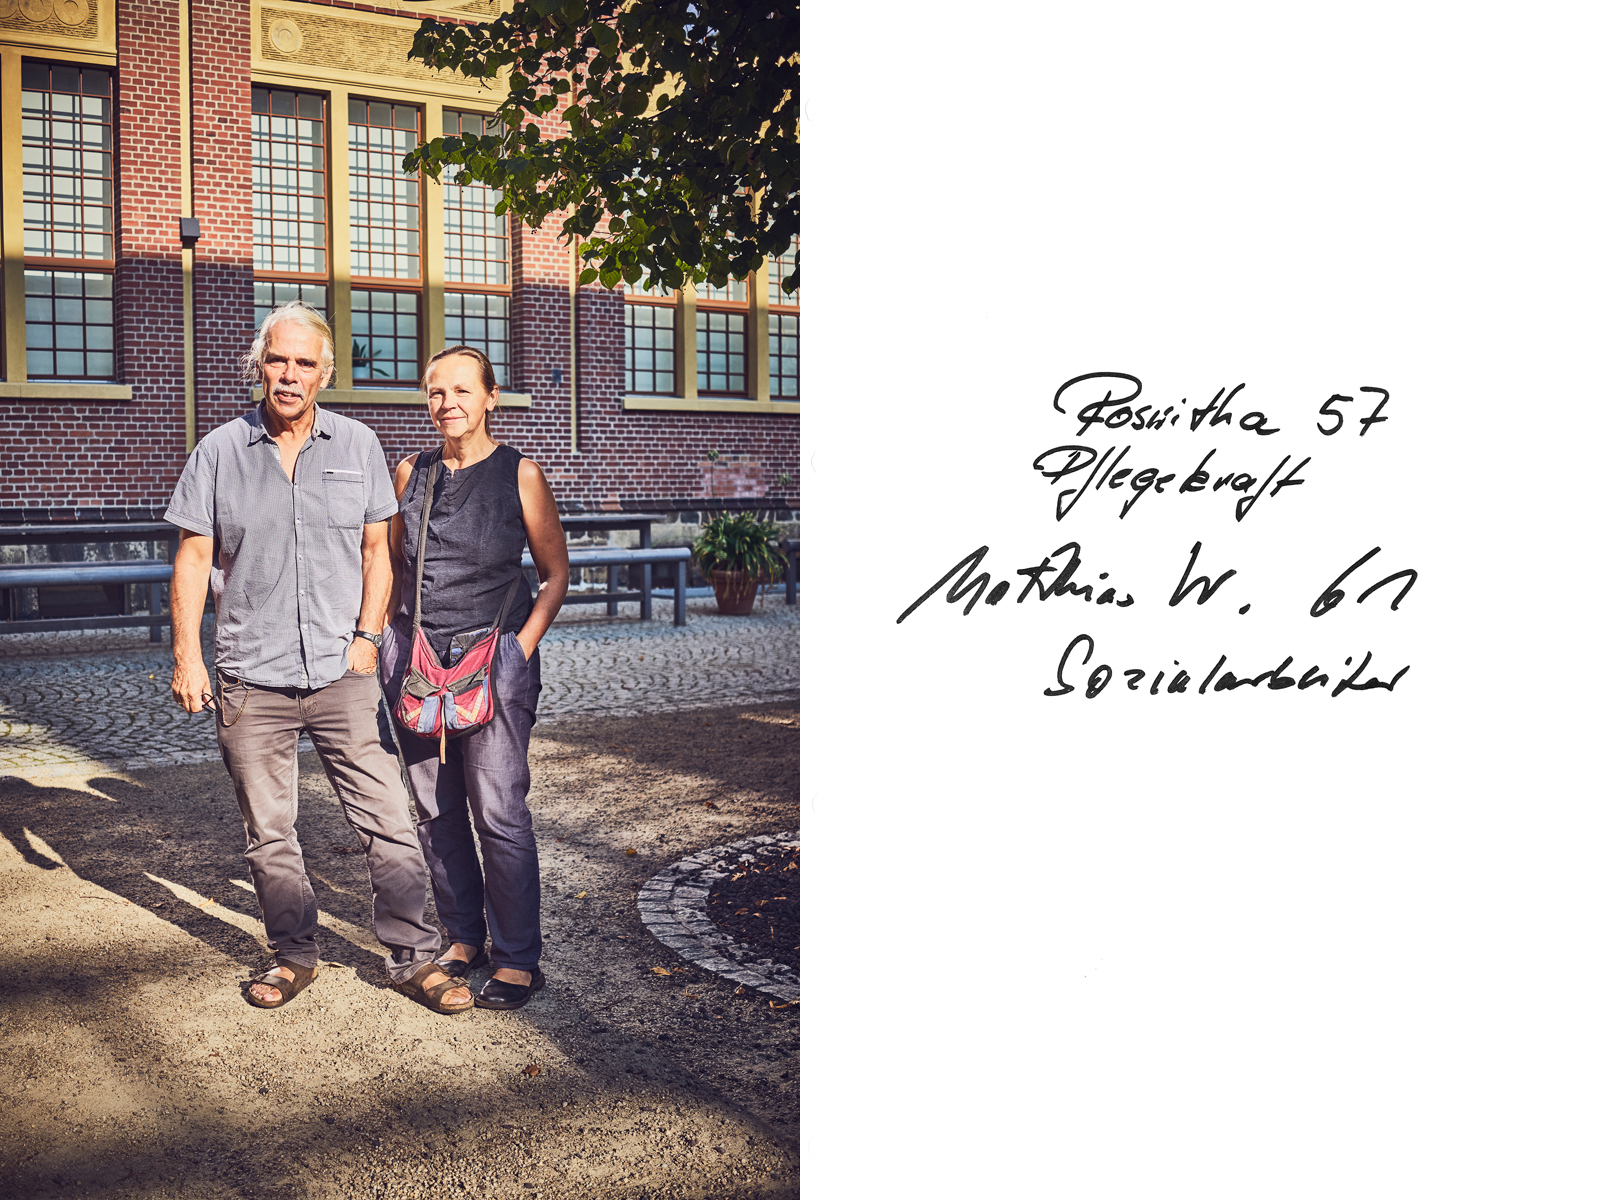 Roswitha 57
Pflegekraft
Matthias W. 61
Sozialarbeiter